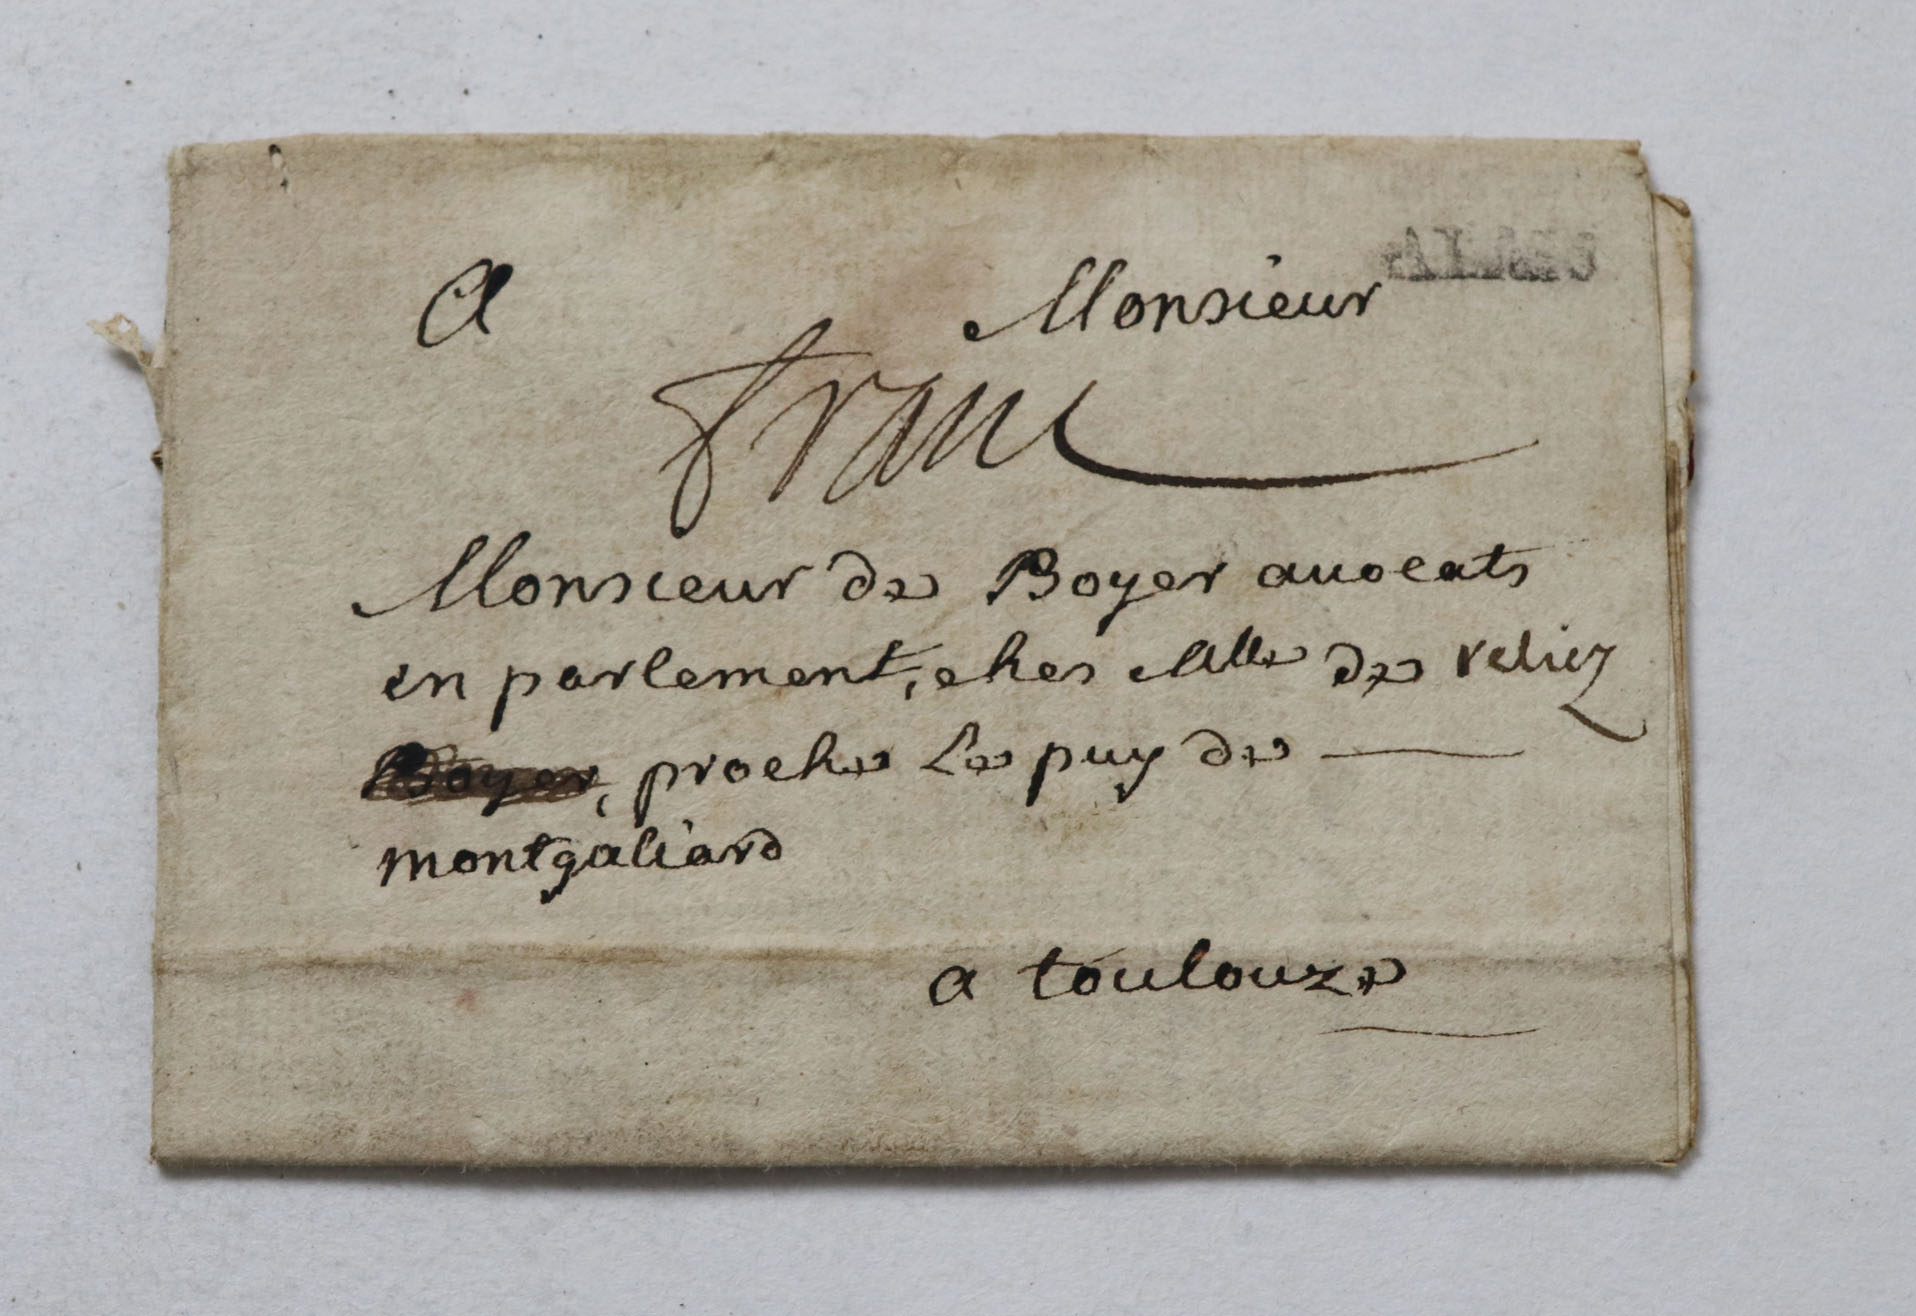 A Monsieur
franc
Monsieur de Boyer auocats
en parlement, ches Mlle de
Boyer, proche Le puy de
montgaliard
a toulouze